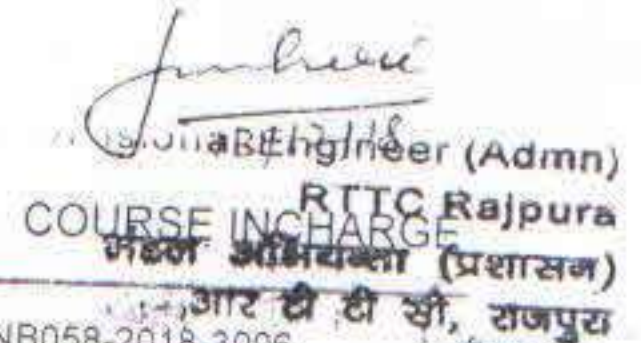 Engineer (Admn)
RTTC Rajpura
COURSE INCHARGE
मंडल अभियन्ता (प्रशासन)
आर टी टी सी, राजपुरा
NB058-2018-3006